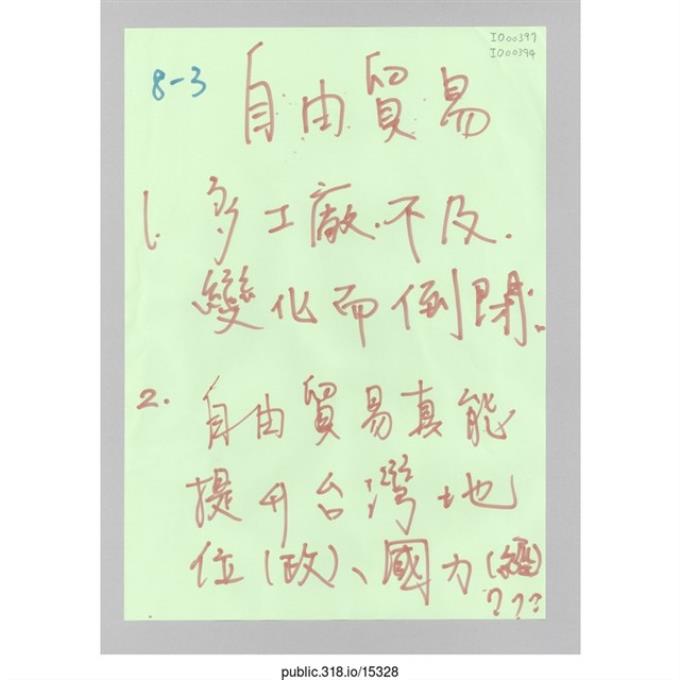 IO00397
IO00394
8-3
自由貿易
1. 多工廠.不及.
變化而倒閉.
2. 自由貿易真能
提升台灣地
位(政)、國力(經)
???
public.318.io/15328